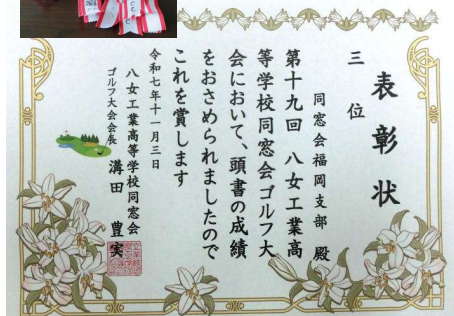 表彰状
三位
同窓会福岡支部 殿
第十九回 八女工業高
等学校同窓会ゴルフ大
会において、頭書の成績
をおさめられましたので
これを賞します
令和七年十一月三日
八女工業高等学校同窓会
ゴルフ大会会長 溝田 豊実